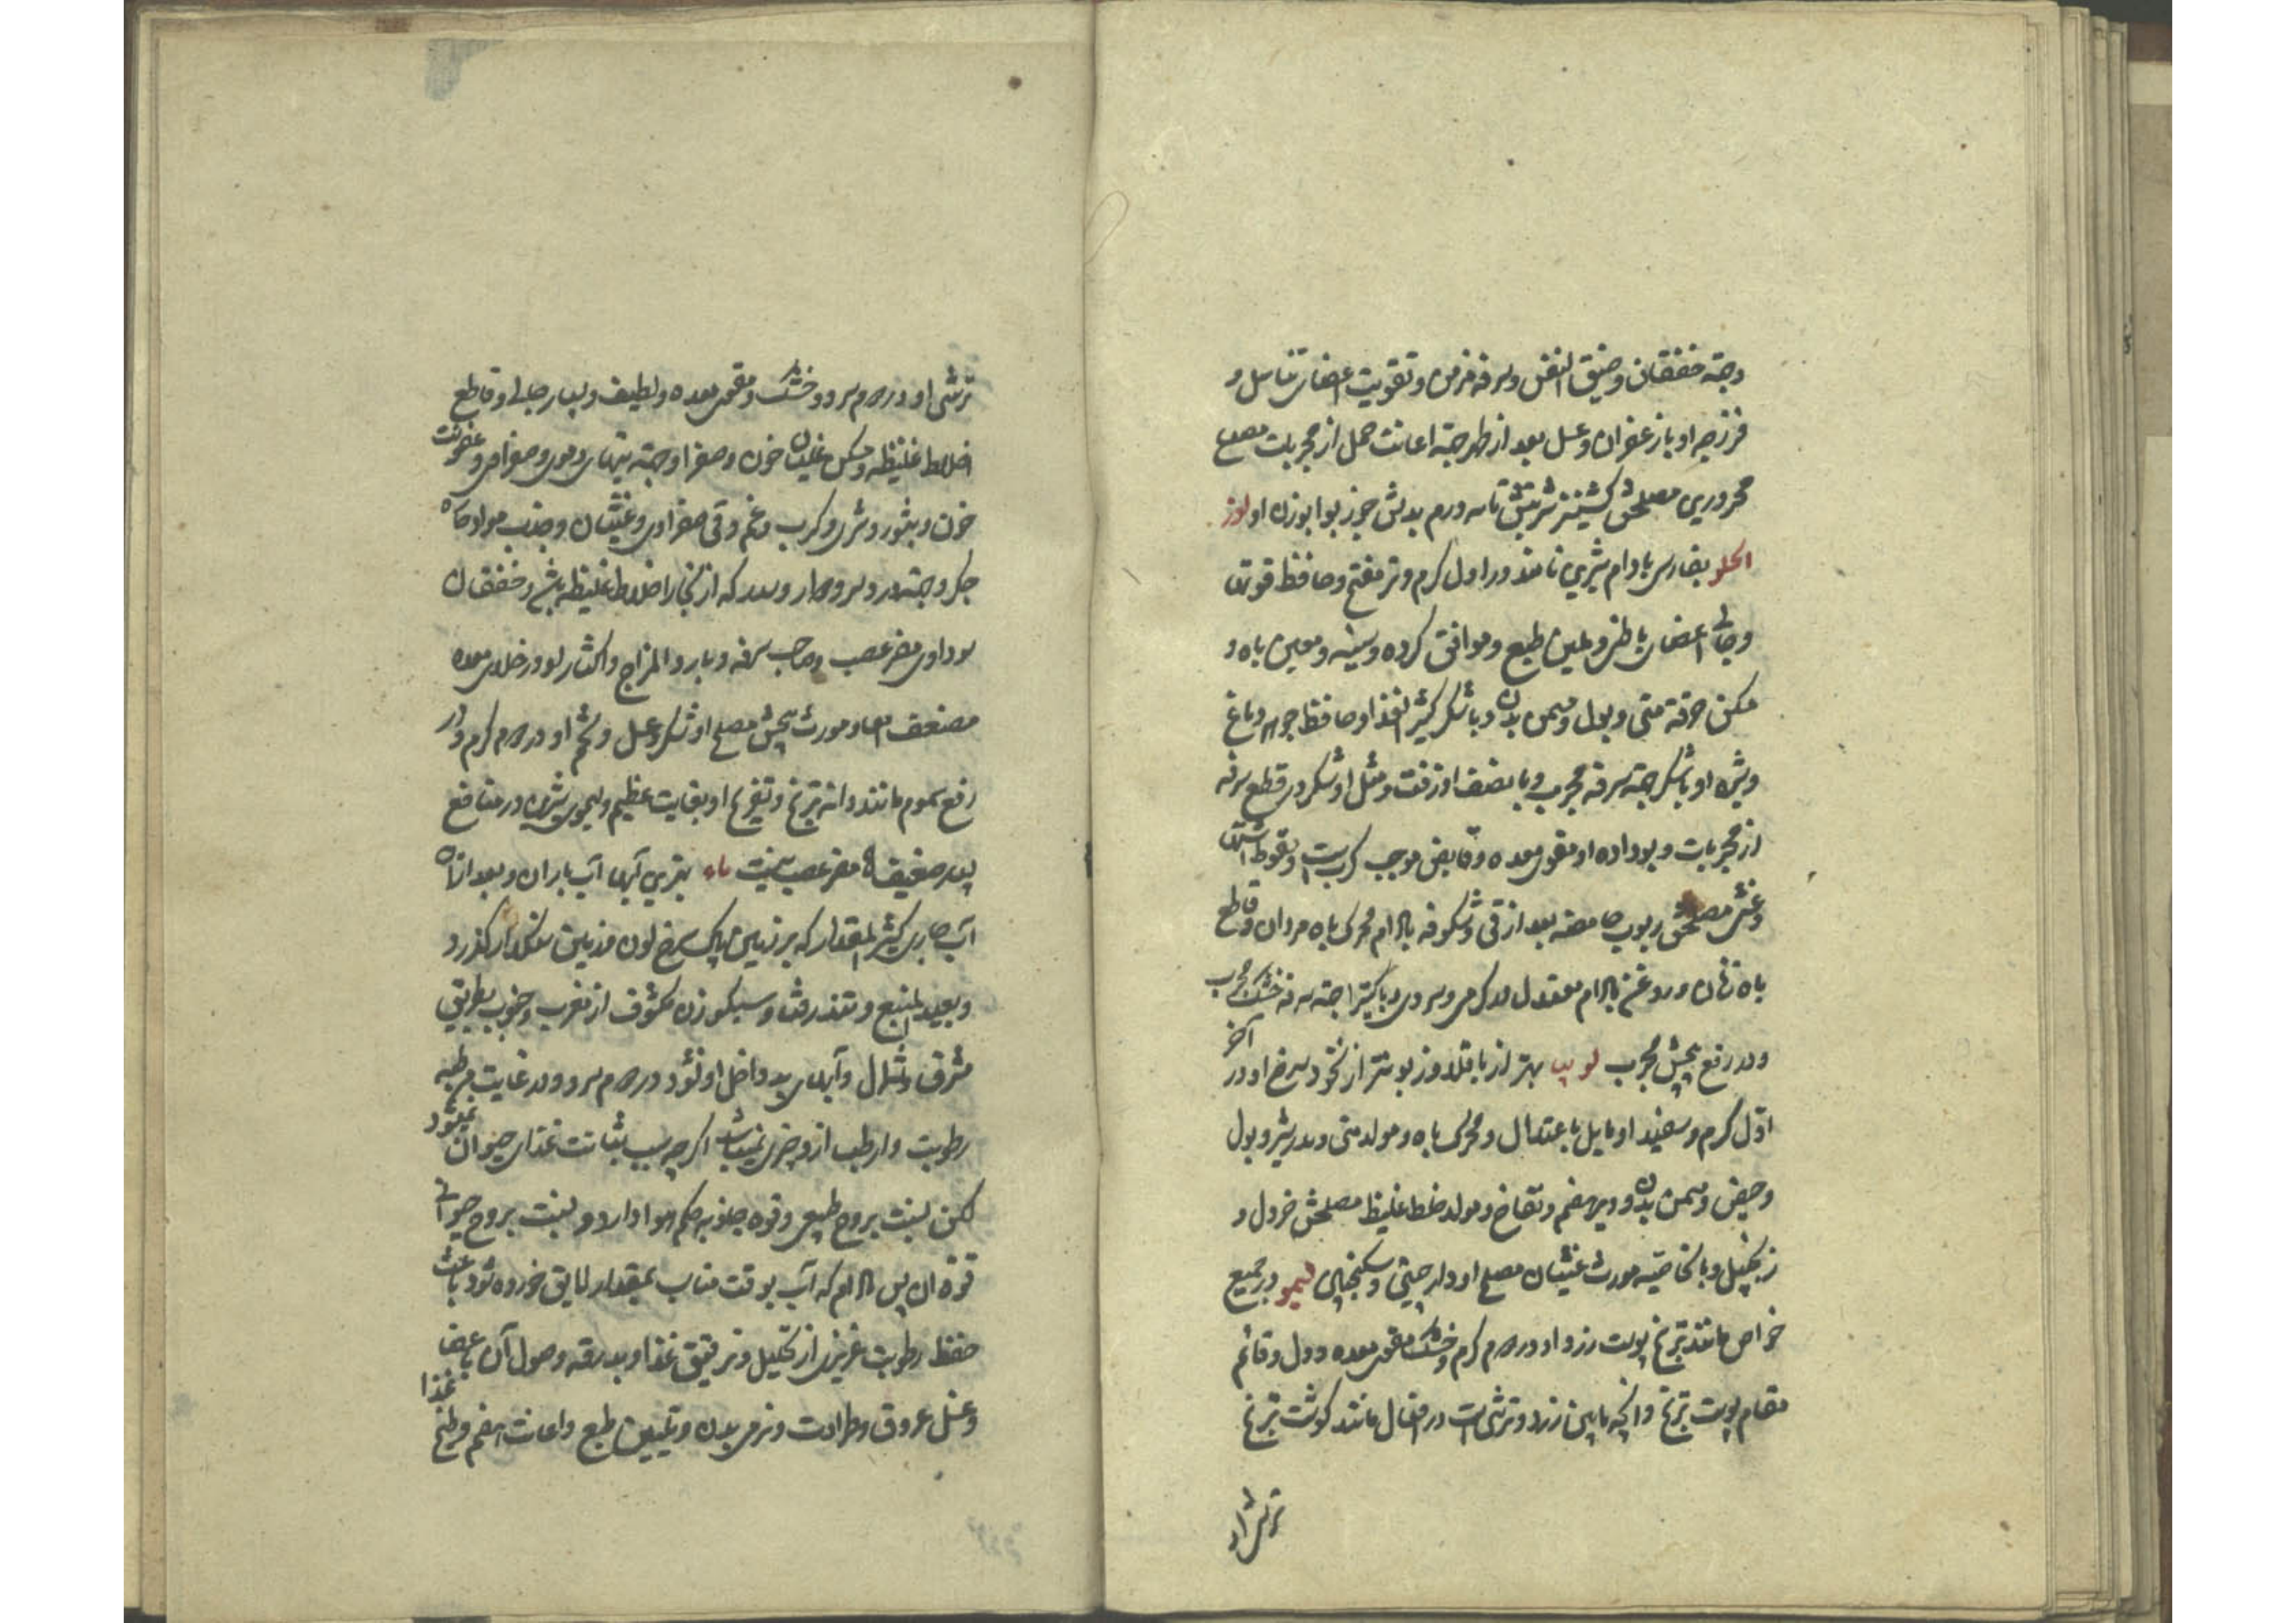 وجهة خفقان و ضیق النفس و سرفه مزمن و تقویت اعضای تناسل و
فرزجه او با زعفران و عسل بعد از طهر جهة اعانت حمل از مجربات مصدع
محرورین مصلحش کشنیز شربتش تا سه درم بدلش جوز بوا بوزن او لوز
الحلو بفارسی بادام شیرین نامند در اول کرم و تر مفتح و حافظ قوتها
و جالی اعضای باطنی و ملین طبع و موافق کرده و سینه و معین باه و
مسکن حرقة مثانه و بول و مسمن بدن و با شکر کثیر الغذا و حافظ جوهر دماغ
و شیره او با شکر جهة سرفه مجرب و با نصف او زفت و مثل او شکر در قطع سرفه
از مجربات و بو داده او مقوی معده و قابض موجب کربست و سقوط اشتها
و غشی مصلحش ربوب حامضه بعد از قی و شکوفه بادام محرک باه مردان و قاطع
باه زنان و روغن بادام معتدل در کرمی و سردی و با کتیرا جهة سرفه خشک مجرب
و در رفع پیچش مجرب لوبیا بهتر از باقلا و زبونتر از نخود سرخ او در آخر
اول کرم و سفید او مایل باعتدال و محرک باه و مولد منی و مدر شیر و بول
و حیض و مسمن بدن و دیر هضم و نفاخ و مولد خلط غلیظ مصلحش خردل و
زنجبیل و بالخاصیه مورث غثیان مصلح او دارچینی و سکنجبین لیمو در جمیع
خواص مانند ترنج پوست زرد او در دوم کرم و خشک مقوی معده و دل و قائم
مقام پوست ترنج و انچه مابین زرد و ترشی است در افعال مانند کوشت ترنج
ترشی او
ترشی او در دوم سرد و خشک و مقوی معده و لطیف و بسیار جالی و قاطع
اخلاط غلیظه و مسکن غلیان خون و صفرا و جهة تبهای دموی و صفراوی و عفونت
خون و بثور و شری و کرب و غم و قی صفراوی و غثیان و جذب مواد حاره
جکر و جهة درد سر و دوار و سدر که از بخار اخلاط غلیظه باشد و خفقان
سوداوی مضر عصب و صاحب سرفه و بارد المزاج و اکثار او در خلای معده
مضعف امعا و مورث پیچش مصلح او شکر و عسل و تخم او در دوم کرم و در
رفع سموم مانند دانه ترنج و تفریح او بغایت عظیم و لیموی شیرین در منافع
بسیار ضعیف و مضر عصب نیست ماء بهترین آبها آب باران و بعد ازان
آب جاری کثیر المقدار که بر زمین پاک سرخ لون و زمین سنکلاخ کذرد
و بعید المنبع و تند رفتار و سبک وزن مکشوف از مغرب و جنوب بطریق
مشرق و شمال و آبهای بد داخل او نشود در دوم سرد و در غایت مرطبه
رطوبت و ارطب ازو چیزی نمیباشد اکرچه بسبب بشاعت غذای حیوان نمیشود
لکن نسبت بروح طبیعی و قوه جذوبه حکم هوا دارد و نسبت بروح حیوانی
قوة ان پس مادام که آب بوقت مناسب بمقدار لایق خورده شود باعث
حفظ رطوبت غریزی از تحلیل و ترقیق غذا و بدرقه وصول آن باعضا
و غسل عروق و طراوت و نرمی بدن و تلیین طبع و اعانت هضم و طبخ غذا